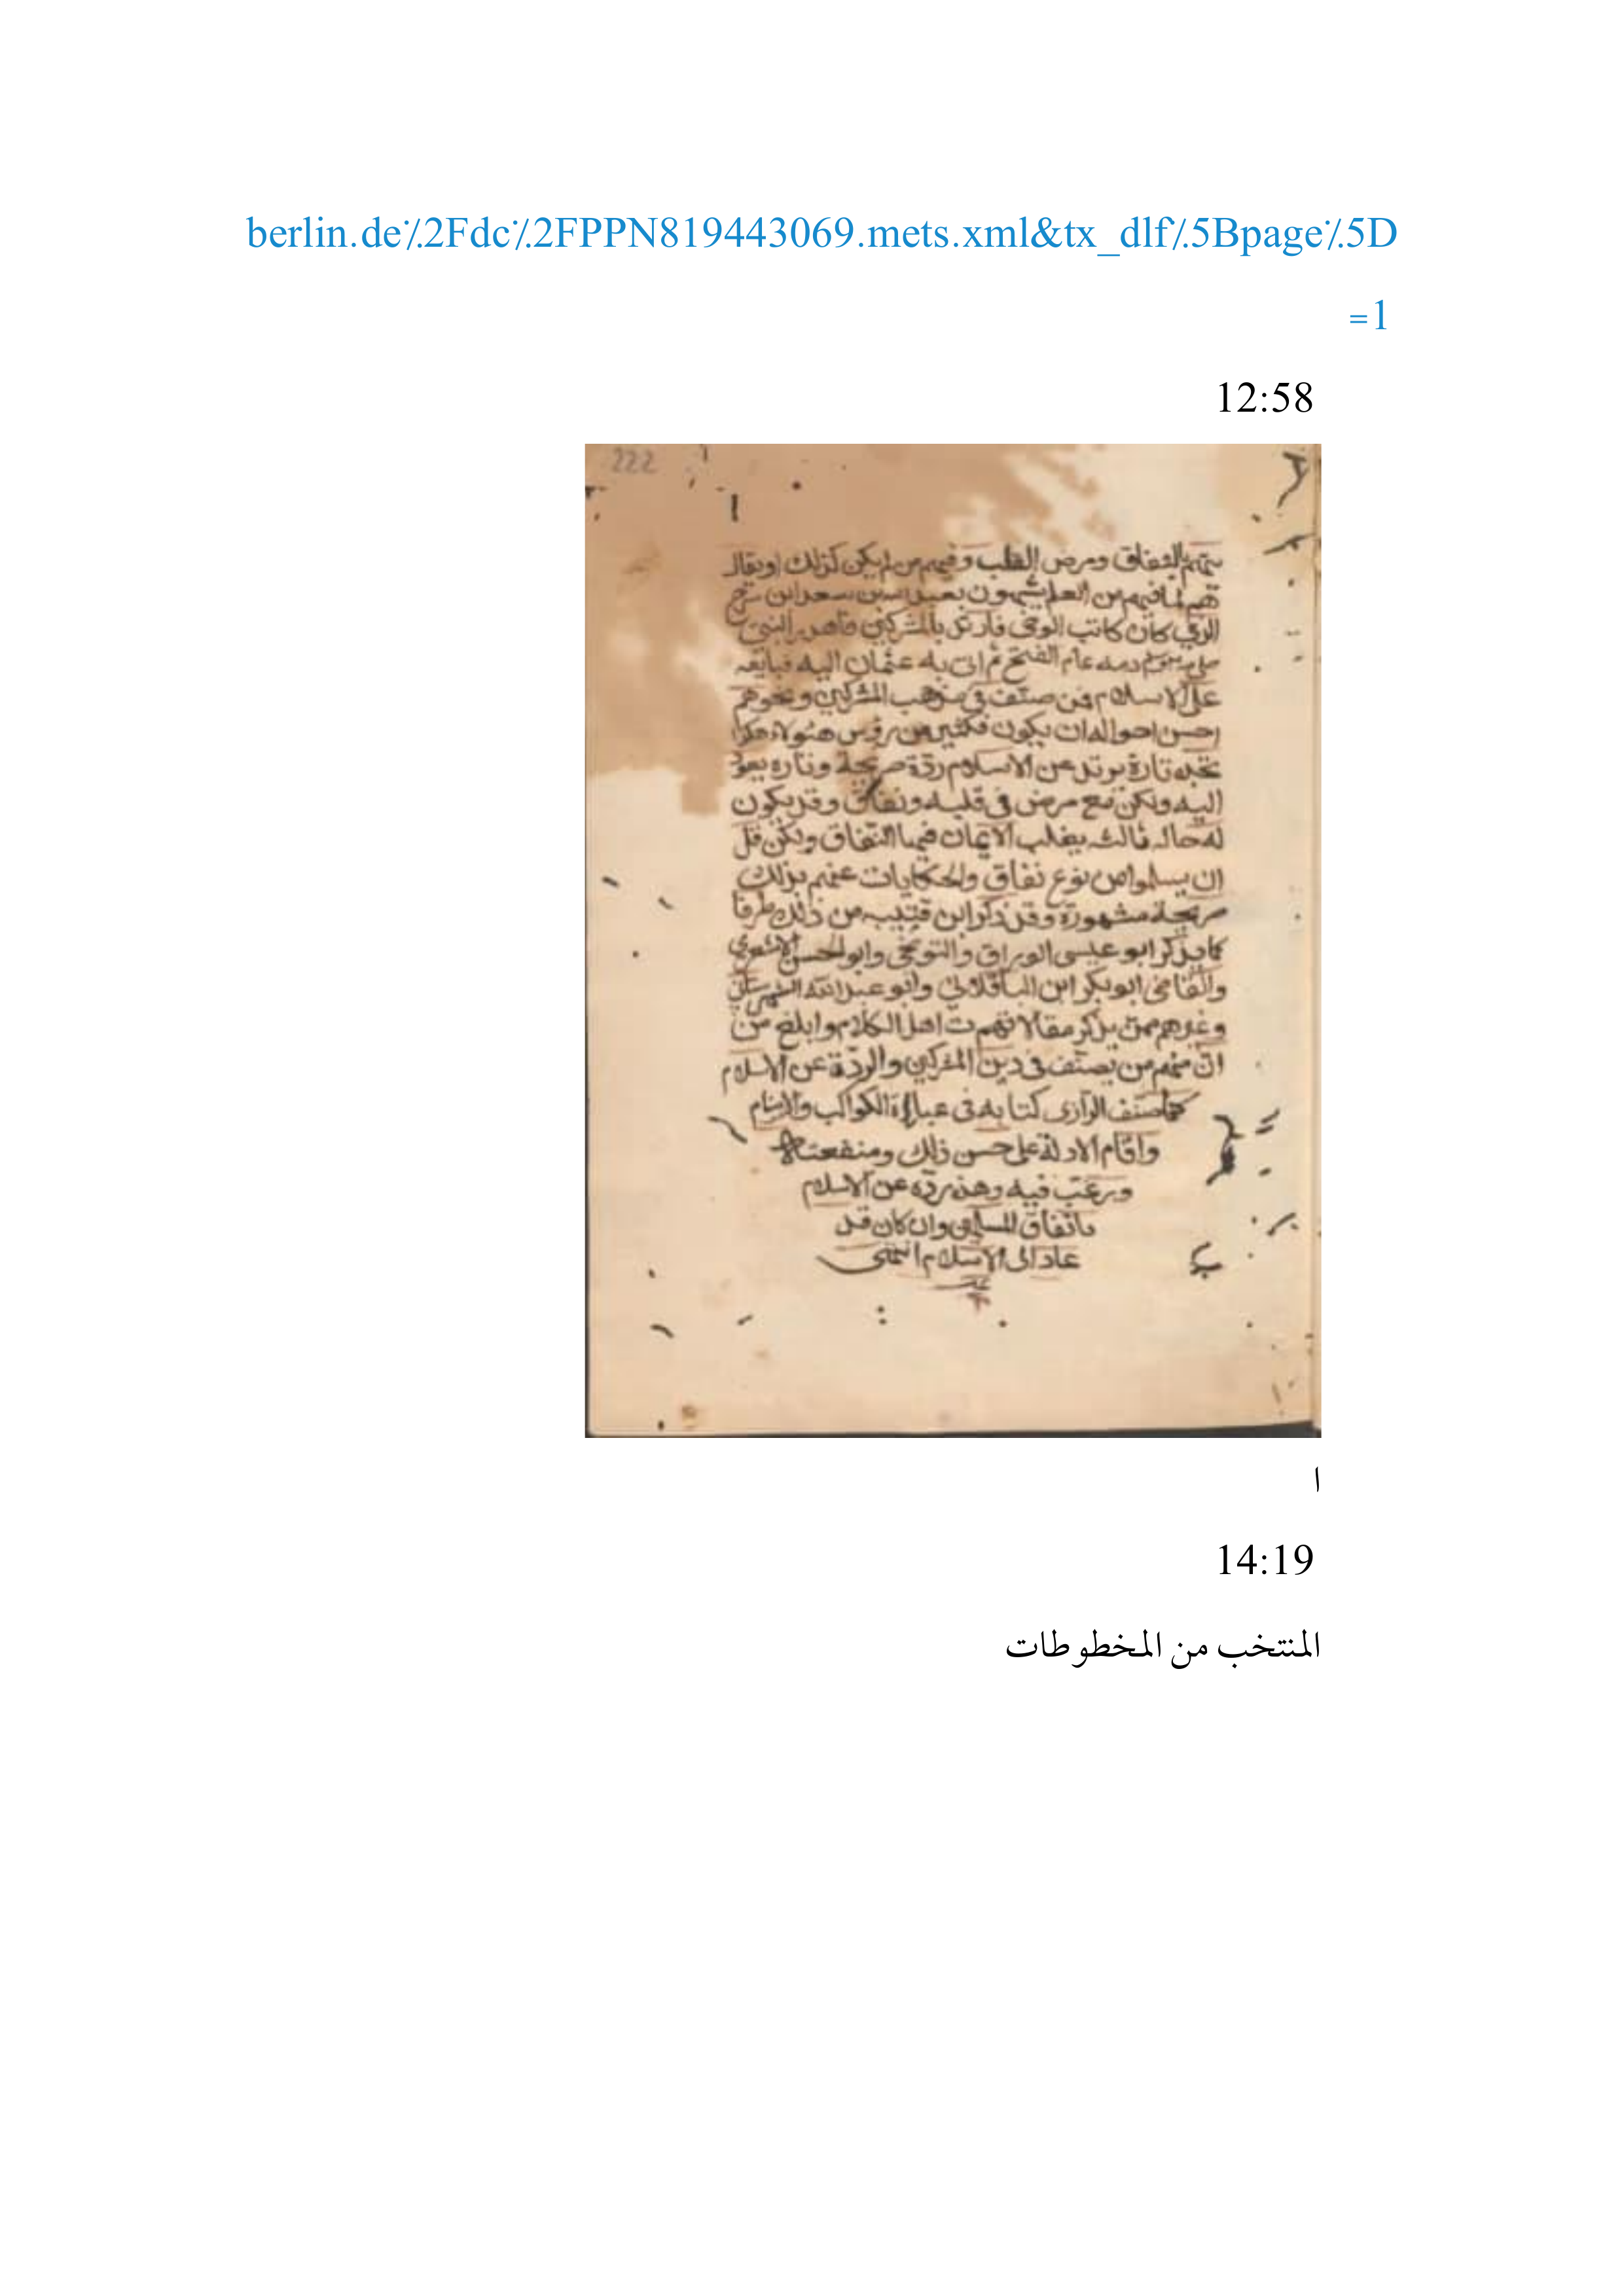 berlin.de٪2Fdc٪2FPPN819443069.mets.xml&tx_dlf٪5Bpage٪5D
=1
12:58
222
يتهم بالنفاق ومرض القلب وفيهم من لم يكن كذلك او يقال
هم لما فيهم من العلم يشبهون بعبد الله بن سعد ابن سرح
الذي كان كاتب الوحي فارتد بالمشركين فاهدر النبي
دمه عام الفتح ثم اتى به عثمان اليه فبايعه
على الاسلام فمن صنف في مذهب المشركين ونحوهم
احسن احواله ان يكون فكثير من رؤس هئولاء هكذا
تجده تارة يرتد عن الاسلام ردّة صريحة وتاره يعود
اليه ولكن مع مرض في قلبه ونفاق وقد يكون
له حاله ثالثه يغلب الايمان فيها النفاق ولكن قل
ان يسلموا من نوع نفاق والحكايات عنهم بذلك
صريحة مشهورة وقد ذكر ابن قتيبه من ذلك طرفا
كما يذكر ابو عيسى الوراق والنوبختي وابو الحسن الاشعري
والقاضي ابو بكر ابن الباقلاني وابو عبد الله الشهرستاني
وغيرهم ممن يذكر مقالات اهل الكلام وابلغ من
انّ منهم من يصنّف في دين المشركين والردّة عن الاسلام
كما صنف الرازى كتابه في عبادة الكواكب والاصنام
واقام الادلة على حسن ذلك ومنفعته
ورغب فيه وهذه ردّه عن الاسلام
باتفاق المسلمين وان كان قد
عاد الى الاسلام انتهى
ا
14:19
المنتخب من المخطوطات